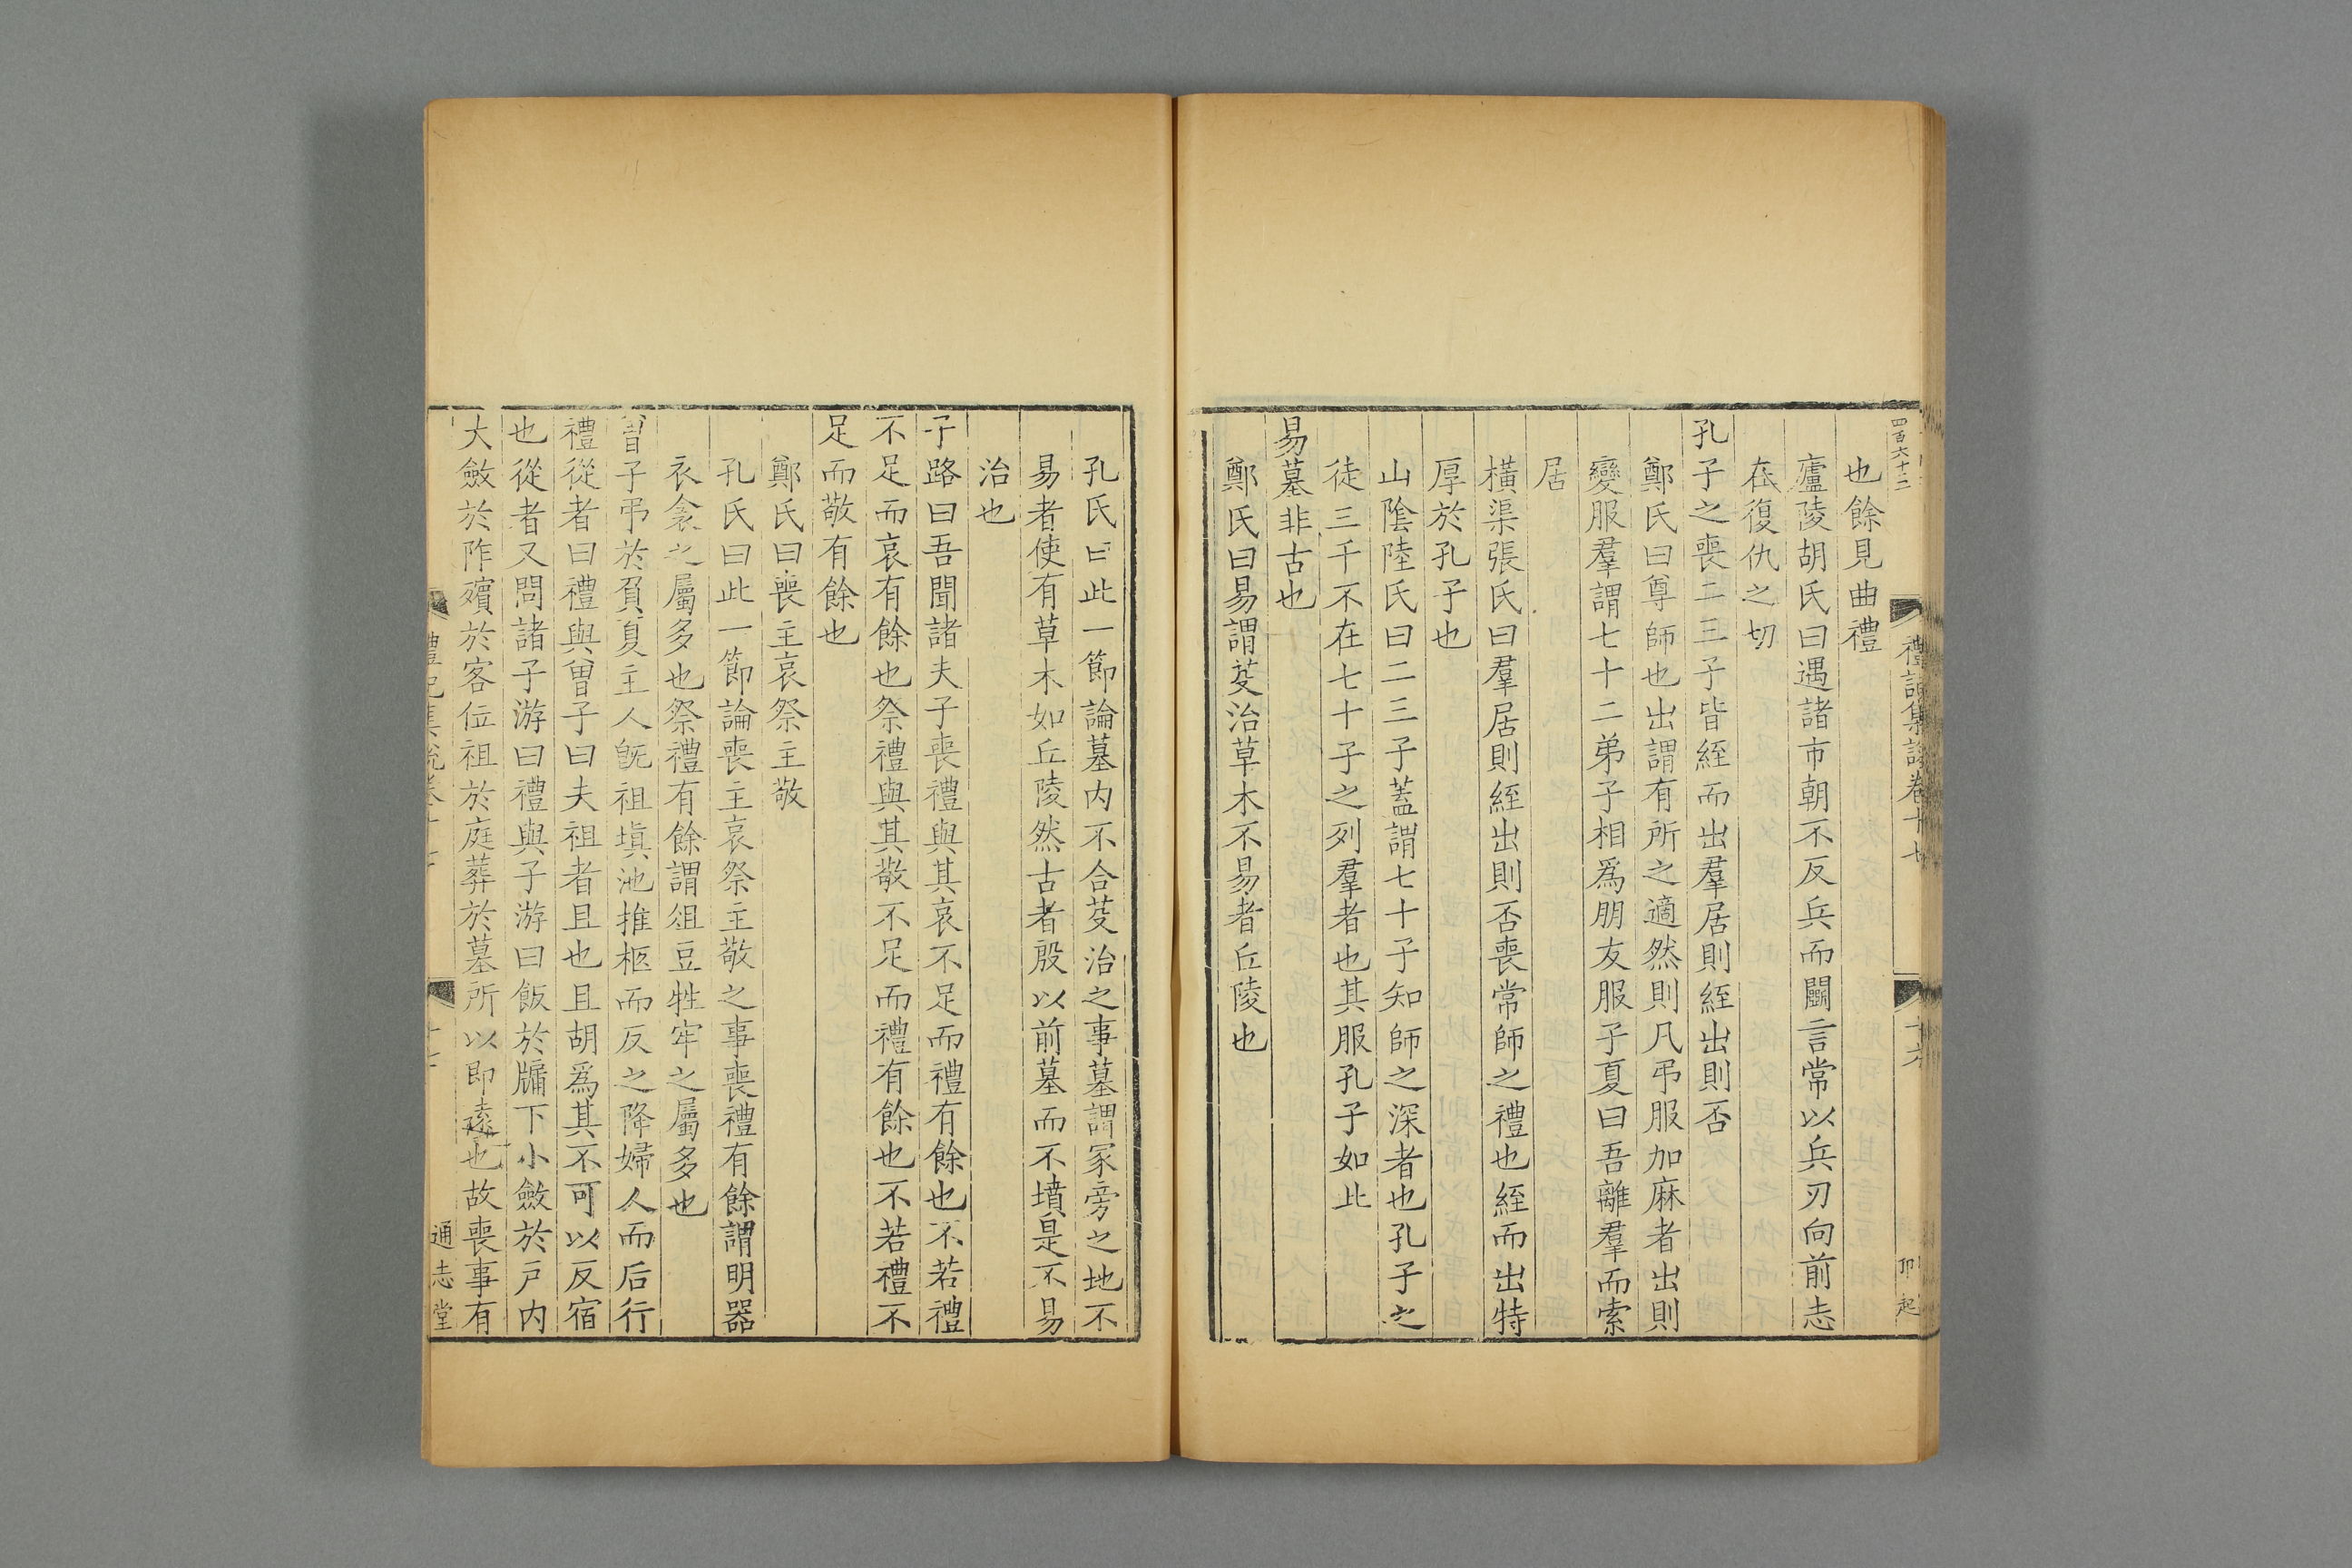 四百六十二
禮記集說卷十七
十六
卯起
也餘見曲禮
廬陵胡氏曰遇諸市朝不反兵而鬭言常以兵刃向前志
在復仇之切
孔子之喪二三子皆絰而出羣居則絰出則否
鄭氏曰尊師也出謂有所之適然則凡弔服加麻者出則
變服羣謂七十二弟子相爲朋友服子夏曰吾離羣而索
居
橫渠張氏曰羣居則絰出則否喪常師之禮也絰而出特
厚於孔子也
山隂陸氏曰二三子蓋謂七十子知師之深者也孔子之
徒三千不在七十子之列羣者也其服孔子如此
易墓非古也
鄭氏曰易謂芟治草木不易者丘陵也
孔氏曰此一節論墓内不合芟治之事墓謂冢旁之地不
易者使有草木如丘陵然古者殷以前墓而不墳是不易
治也
子路曰吾聞諸夫子喪禮與其哀不足而禮有餘也不若禮
不足而哀有餘也祭禮與其敬不足而禮有餘也不若禮不
足而敬有餘也
鄭氏曰喪主哀祭主敬
孔氏曰此一節論喪主哀祭主敬之事喪禮有餘謂明器
衣衾之屬多也祭禮有餘謂俎豆牲牢之屬多也
曾子弔於負夏主人旣祖塡池推柩而反之降婦人而后行
禮從者曰禮與曾子曰夫祖者且也且胡爲其不可以反宿
也從者又問諸子游曰禮與子游曰飯於牖下小斂於戸内
大斂於阼殯於客位祖於庭葬於墓所以即遠也故喪事有
禮記集說卷十七
通志堂